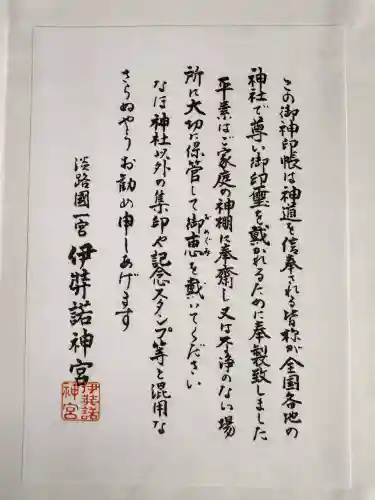 この御神印帳は神道を信奉される皆様が全国各地の
神社で尊い御印璽を戴かれるために奉製致しました
平素はご家庭の神棚に奉齋し又は不浄のない場
所に大切に保管して御恵を戴いてください
みめぐみ
なほ神社以外の集印や記念スタンプ等と混用な
さらぬやうお勧め申しあげます
淡路國一宮 伊弉諾神宮
伊弉諾
神宮